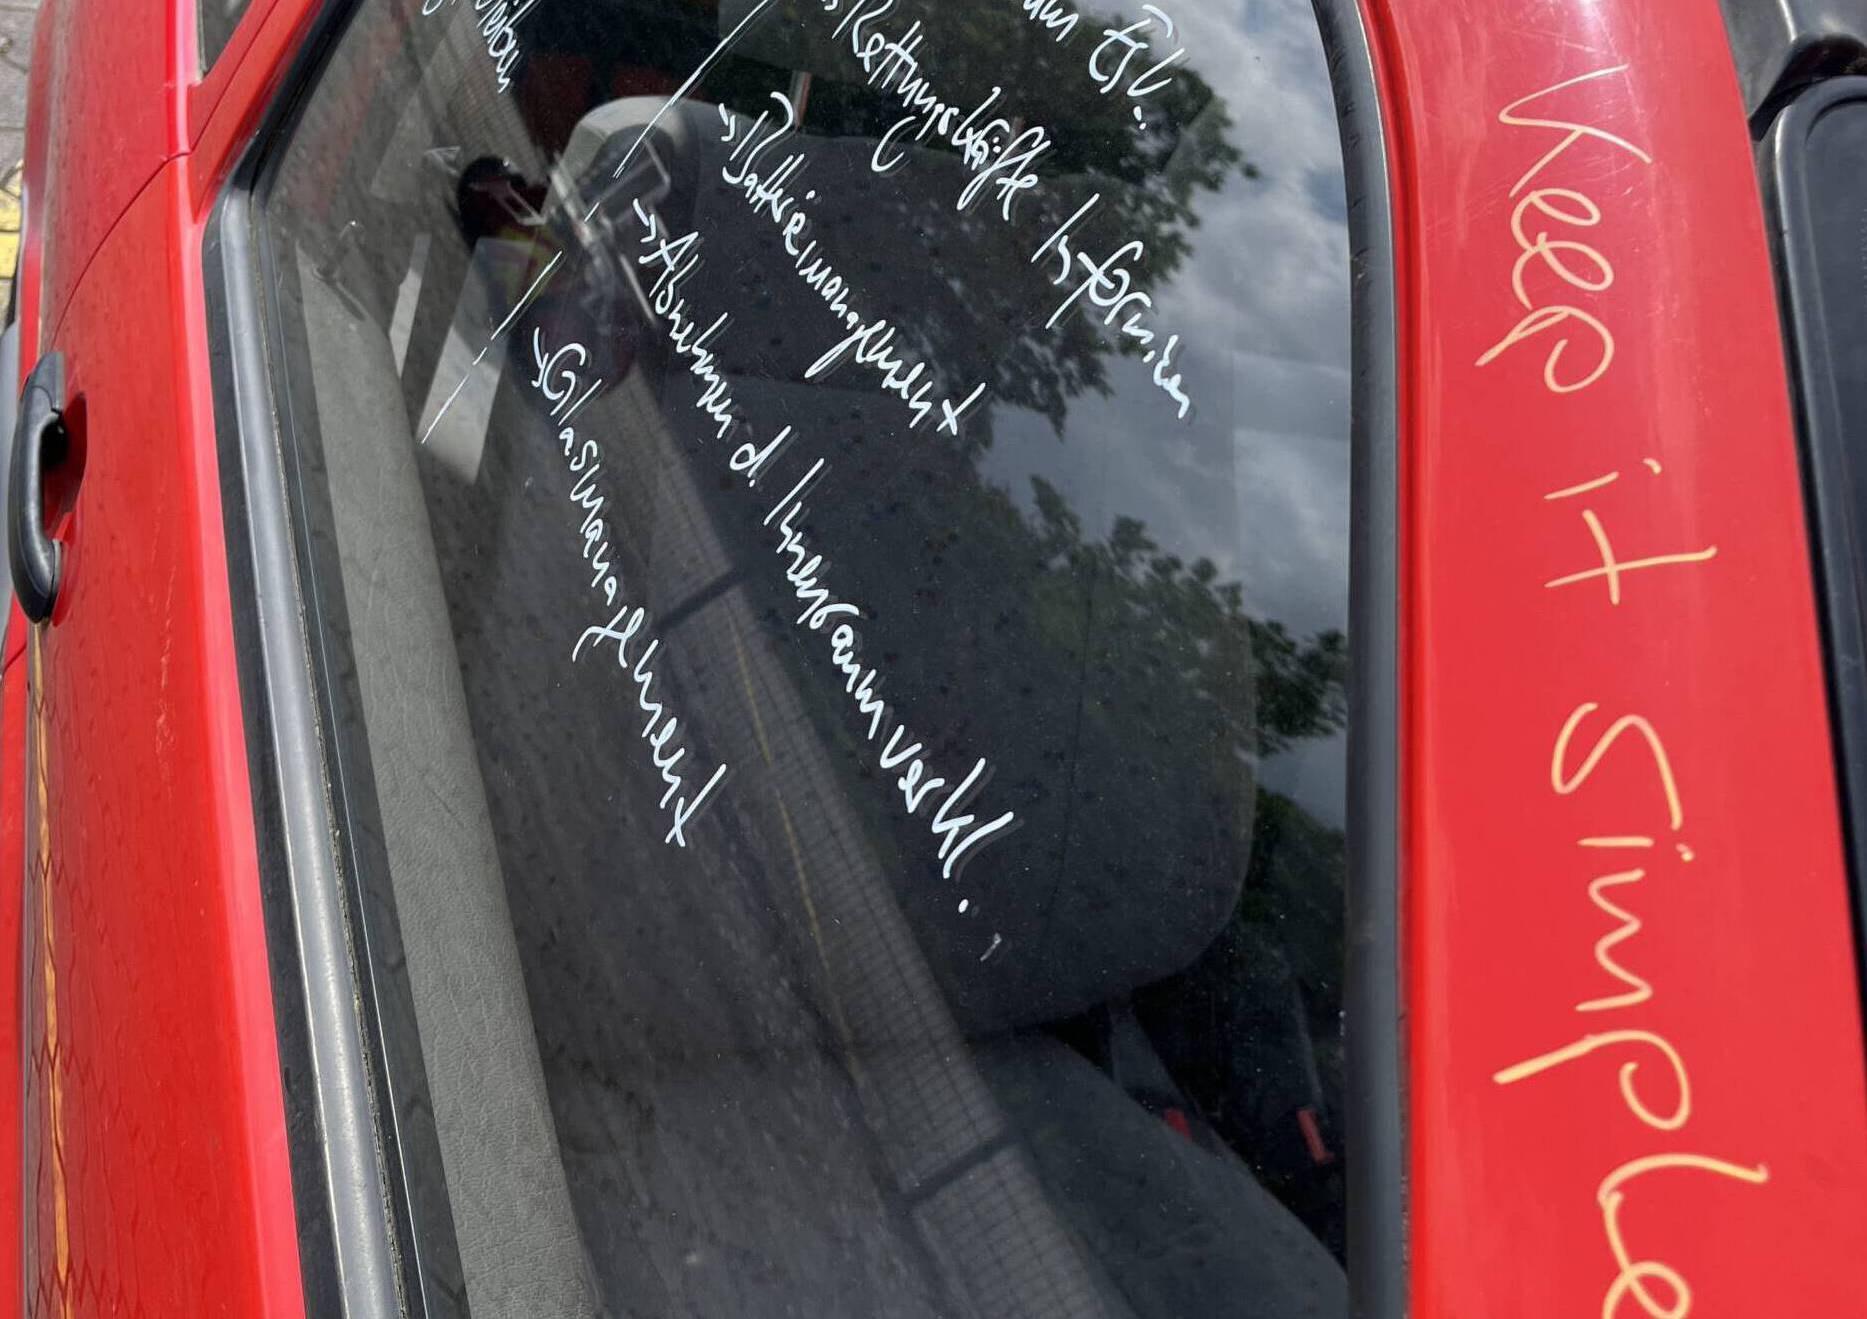 Rettungskräfte Informieren
→ Batteriemanagement
→ Abnehmen d. Innenraumverkl.
→ Glasmanagement
Keep it simple